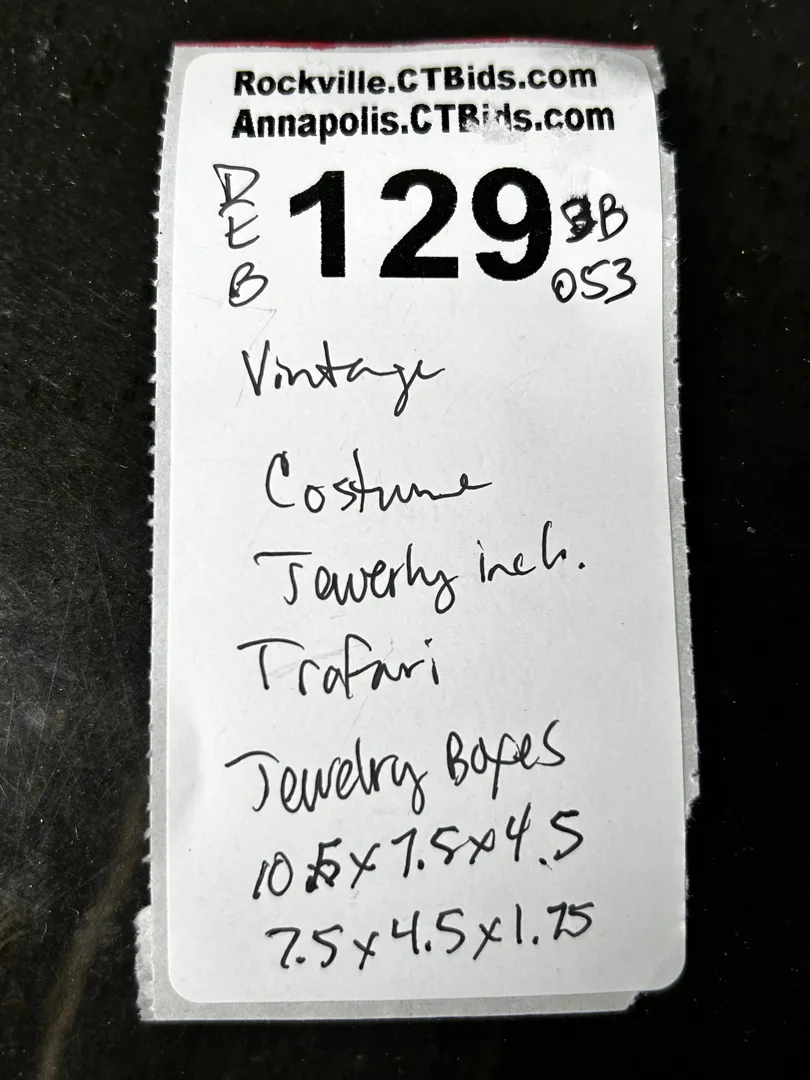 Rockville.CTBids.com
Annapolis.CTBids.com
DEB
129
BB
053
Vintage
Costume
Jewerly incl.
Trafari
Jewelry Boxes
10.5x7.5x4.5
7.5x4.5x1.75